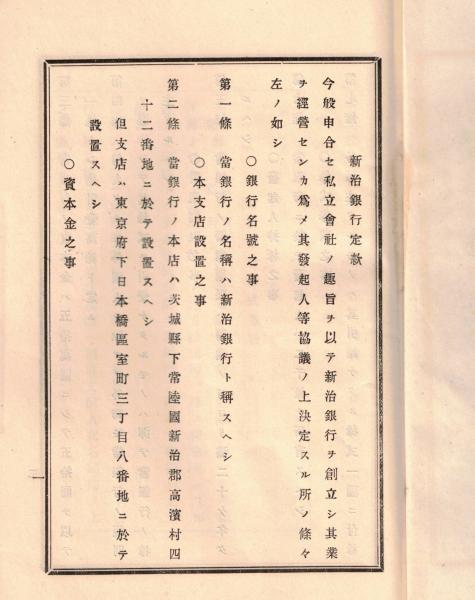 新治銀行定款
今般申合セ私立會社ノ趣旨ヲ以テ新治銀行ヲ創立シ其業
ヲ經營センカ爲メ其發起人等協議ノ上決定スル所ノ條々
左ノ如シ
〇銀行名號之事
第一條　當銀行ノ名稱ハ新治銀行ト稱スヘシ
〇本支店設置之事
第二條　當銀行ノ本店ハ茨城縣下常陸國新治郡高濱村四
十二番地ニ於テ設置スヘシ
但支店ハ東京府下日本橋區室町三丁目八番地ニ於テ
設置スヘシ
〇資本金之事
一